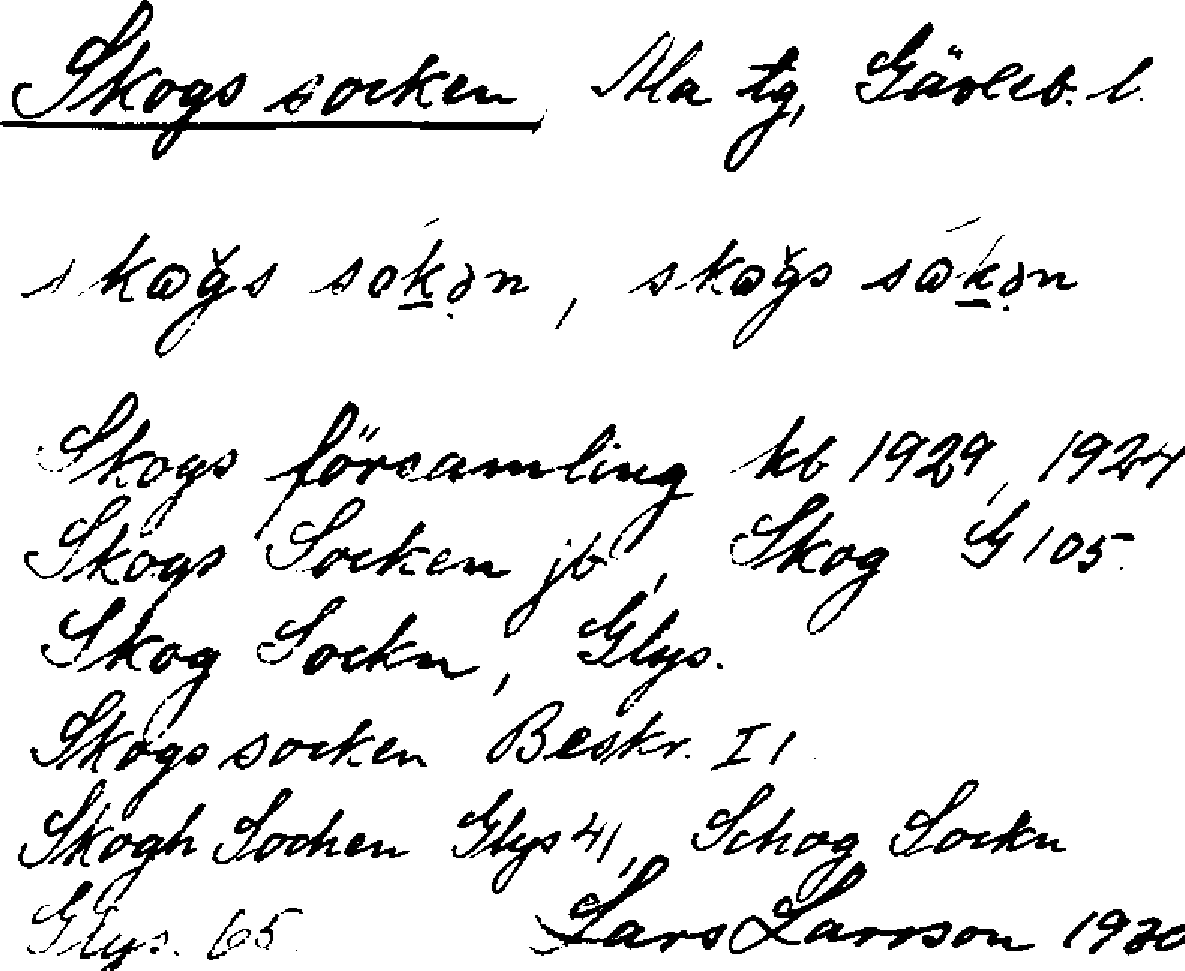 Skogs socken, Ala tg, Gävleb. l.
skøǧs sokən, skøǧs søkən
Skogs församling kb 1929, 1924
Skogs Socken jb, Skog G 105
Skog Sockn, Glys.
Skogs socken Beskr. I 1
Skogh Sochen Glys 41, Schog Sockn
Glys. 65 Lars Larsson 1930